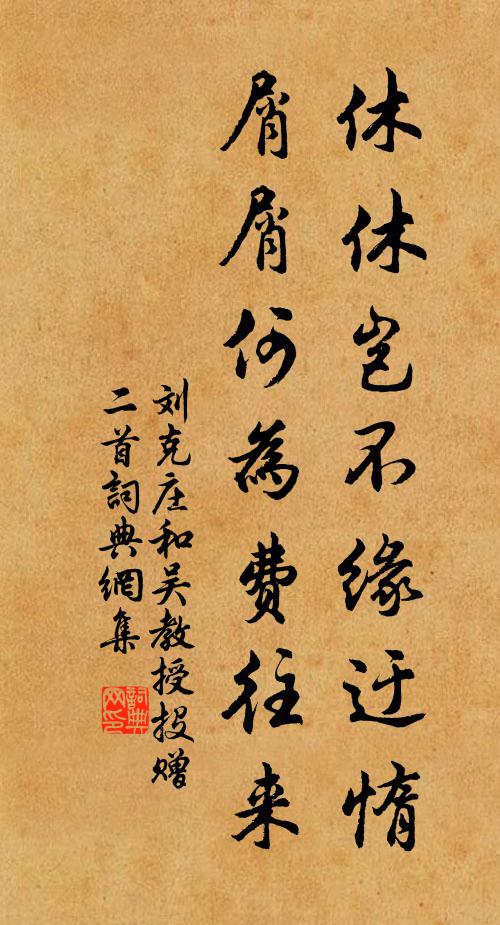 休休岂不緣迂惰
屑屑何為費往来
刘克庄和吴教授投赠
二首詞典網集
詞典网印